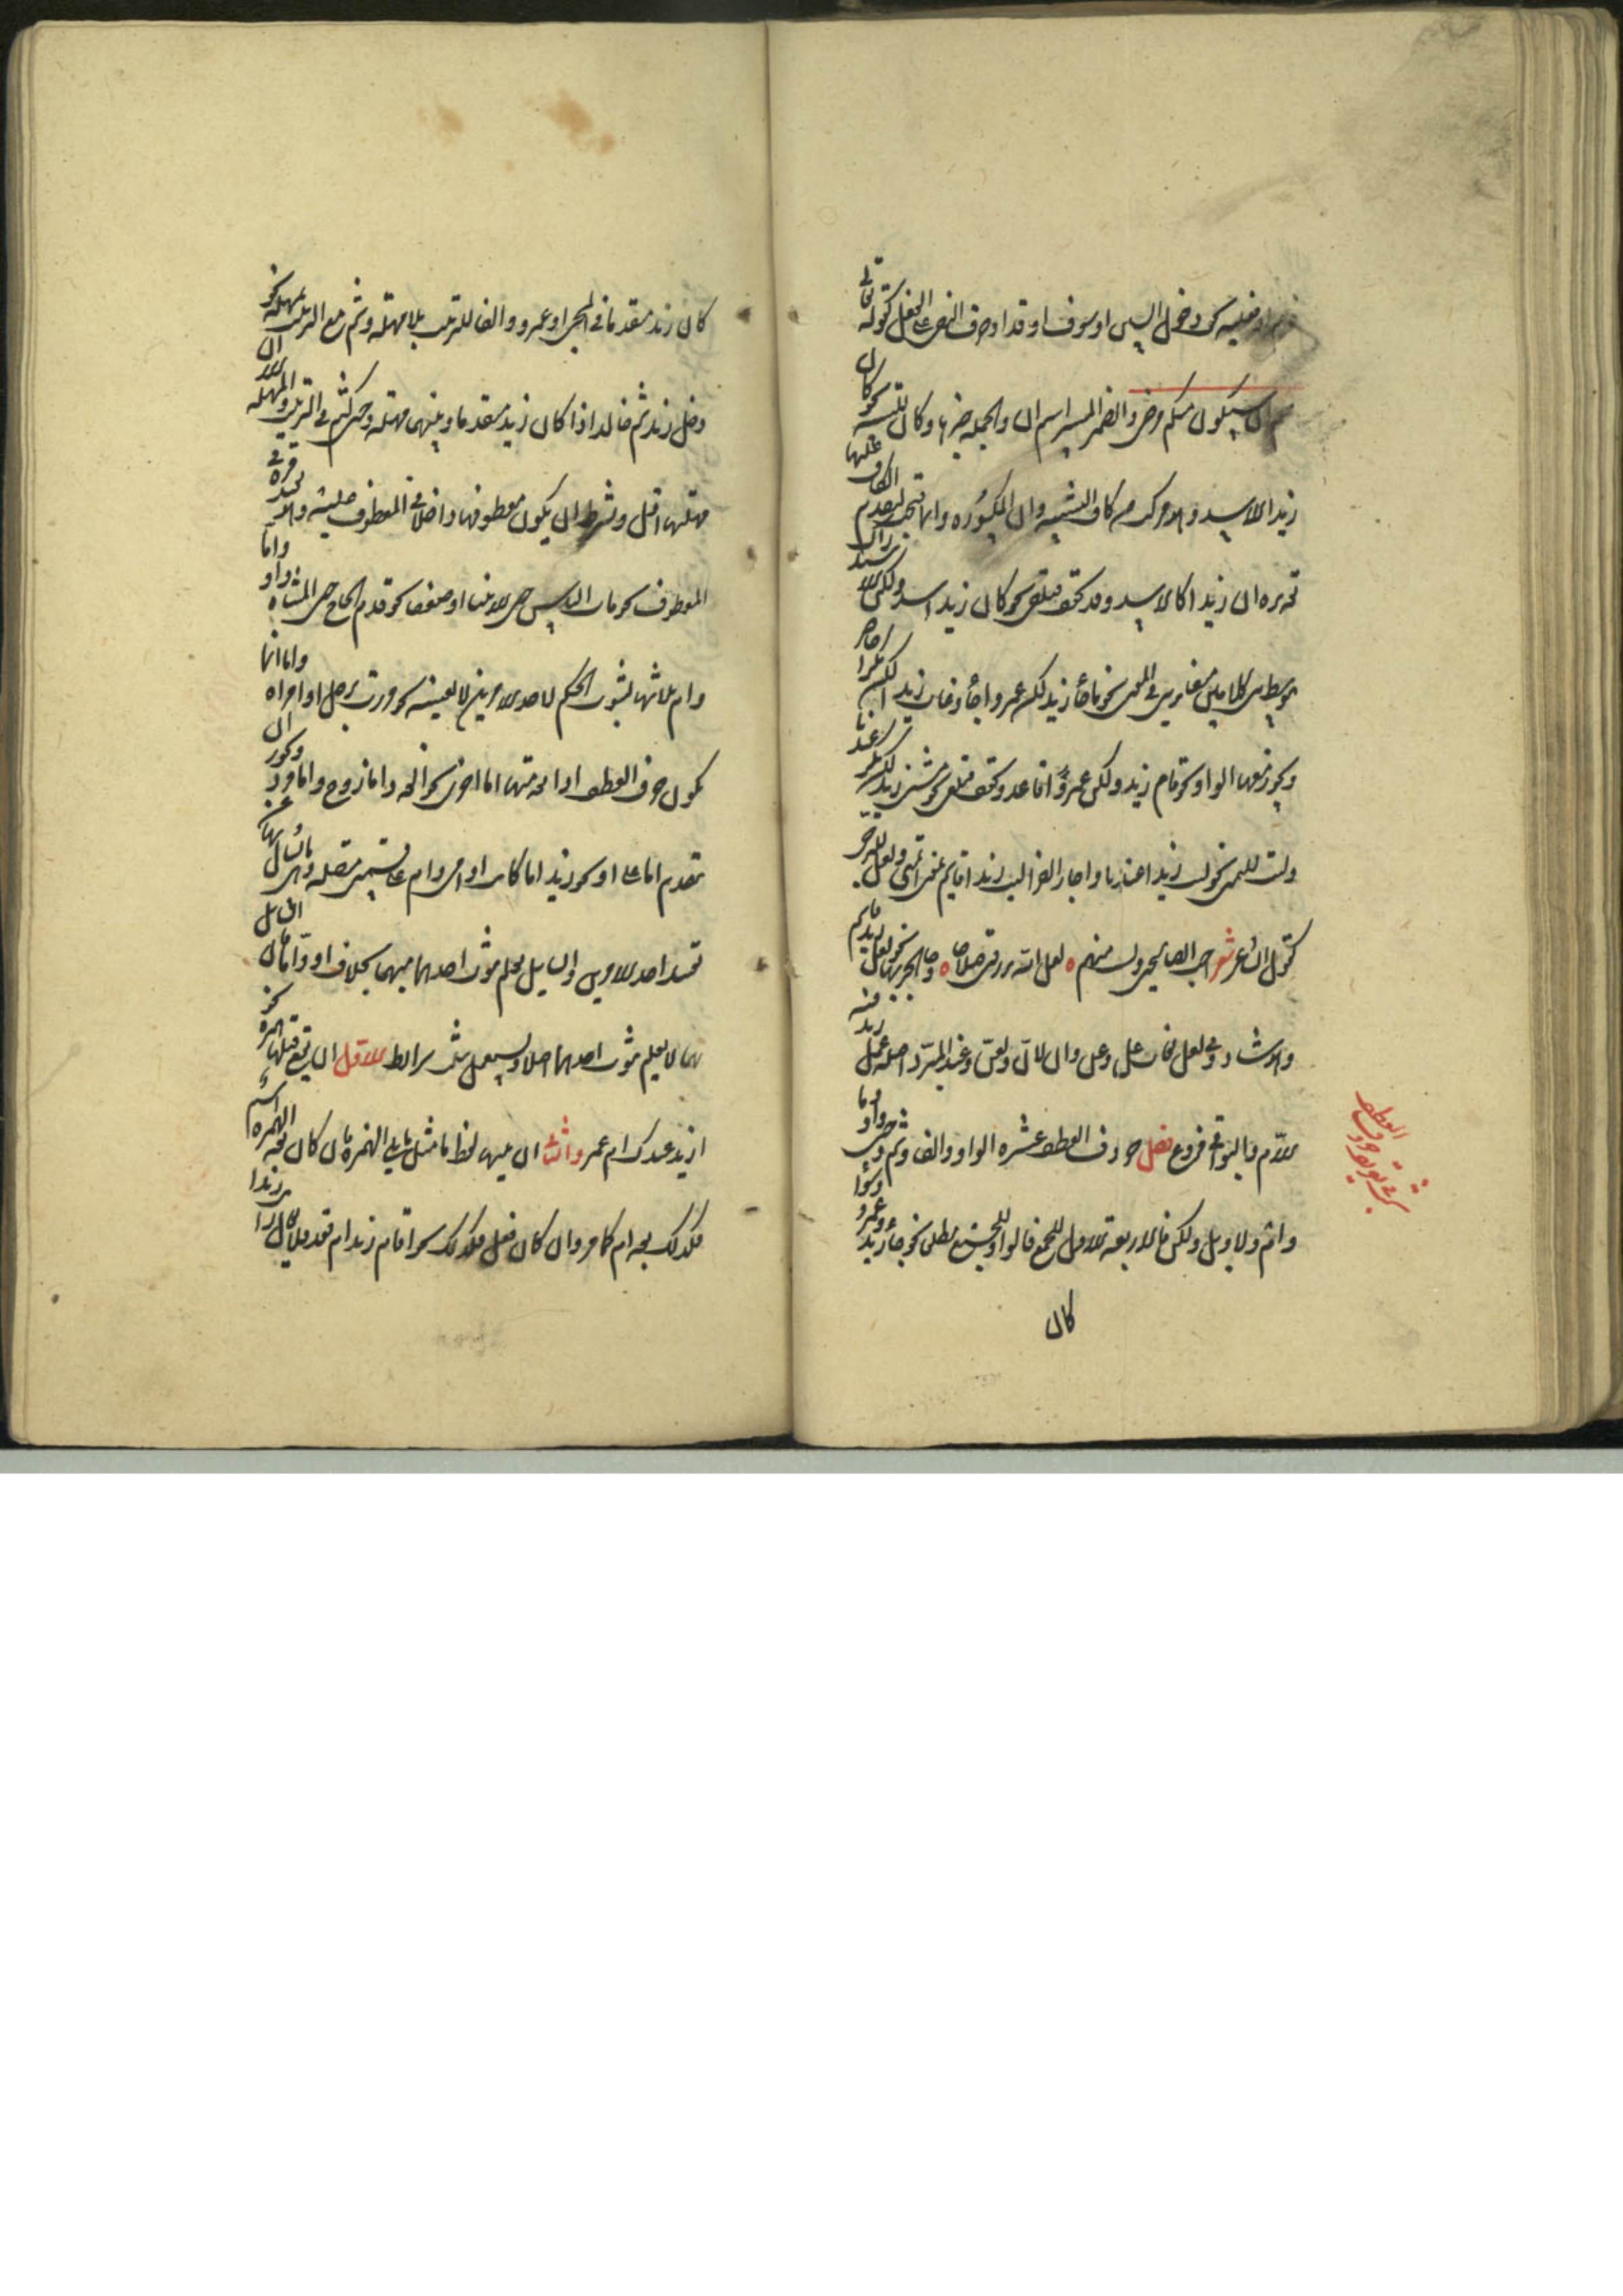 خبرا فعلية كدخول السين او سوف او قد او حرف النفي على الفعل كقوله تعالى
علم ان سيكون منكم مرضى والضمير المستتر اسم ان والجملة خبرها وكان للتشبيه نحو كان
زيدا الاسد وهو مركب من كاف التشبيه وان المكسورة وانما فتحت لتقدم الكاف عليها
تقديره ان زيدا كالاسد وقد تخفف فتلغى نحو كان زيد اسد ولكن للاستدراك
يتوسط بين كلامين متغايرين في المعنى نحو ما جاءني زيد لكن عمروا جاء وغاب زيد لكن بكرا حاضر
ويجوز معها الواو نحو قام زيد ولكن عمروا قاعد وتخفف فتلغى نحو مشى زيد لكن بكر عندنا
وليت للتمني نحو ليت زيدا عندنا واجاز الفراء ليت زيدا قائما بمعنى اتمنى ولعل للترجي
كقول الشاعر شعر احب الصالحين ولست منهم ٥ لعل الله يرزقني صلاحا ٥ وجاء الجر بها نحو لعل زيد قائم
وهو شاذ وفي لعل لغات عل وعن وان ولان ولعن وعند المبرد اصله عل زيد فيه
اللام والبواقي فروع فصل حروف العطف عشرة الواو والفاء وثم وحتى واو واما
وام ولا وبل ولكن فالاربعة الاول للجمع فالواو للجمع مطلقا نحو جاءني زيد وعمرو سواء
كان
العطف
كان زيد متقدما في المجيء او عمرو والفاء للترتيب بلا مهلة وثم مع الترتيب بمهلة نحو
دخل زيد ثم خالد اذا كان زيد متقدما وبينهما مهلة وحتى كثم في الترتيب والمهلة الا ان
مهلتها اقل ويشترط ان يكون معطوفها داخلا في المعطوف عليه وهو يفيد قوة في
المعطوف نحو مات الناس حتى الانبياء او ضعفا نحو قدم الحاج حتى المشاة واو واما
وام ثلاثتها لثبوت الحكم لاحد الامرين لا بعينه نحو مررت برجل او امراة واما انما
يكون حرف العطف اذا تقدمتها اما اخرى نحو العدد اما زوج واما فرد ويجوز ان
تقدم اما على او نحو زيد اما كاتب او امي وام على قسمين متصلة وهي ما يسال بها عن
تعيين احد الامرين والسائل يعلم ثبوت احدهما مبهما بخلاف او واما فان السائل
بهما لا يعلم ثبوت احدهما اصلا ويستعمل بثلث شرائط الاول ان يقع قبلها همزة نحو
ازيد عندك ام عمرو والثاني ان يليها لفظ مثل ما يلي الهمزة فان كان بعد الهمزة اسم
فكذلك بعد ام كما مر وان كان فعل فكذلك نحو اقام زيد ام قعد فلا يقال ارايت زيدا